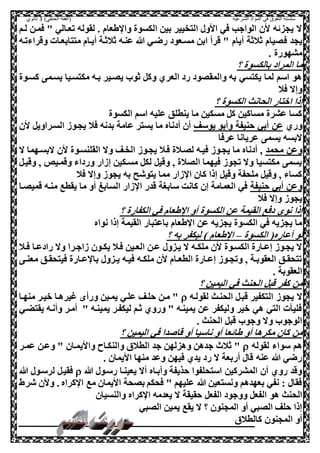 سلسله التفوق في المواد الشرعية (الفقه الحنفي) 3 ثانوي
لا يجزئه لأن الواجب في الأول التخيير بين الكسوة والإطعام . لقوله تعالي " فمن لم
يجد فصيام ثلاثة أيام " قرأ ابن مسعود رضي الله عنه ثلاثة أيام متتابعات وقراءته
مشهورة .
ما المراد بالكسوة ؟
هو اسم لما يكتسي به والمقصود رد العري وكل ثوب يصير به مكتسيا يسمى كسوة
وإلا فلا
إذا اختار الحانث الكسوة ؟
كسا عشرة مساكين كل مسكين ما ينطلق عليه اسم الكسوة
وري عن أبي حنيفة وأبو يوسف أن أدناه ما يستر عامة بدنه فلا يجوز السراويل لأن
لابسه يسمى عريانا عرفا
وعن محمد , أدناه ما يجوز فيه لصلاة فلا يجوز الخف ولا القلنسوة لأن لابسهما لا
يسمى مكتسيا ولا تجوز فيهما الصلاة , وقيل لكل مسكين إزار ورداء وقميص , وقيل
كساء , وقيل ملحفة وقيل إذا كان الإزار مما يتوشح به يجوز وإلا فلا
وعن أبي حنيفة في العمامة إن كانت سابغة قدر الإزار السابغ أو ما يقطع منه قميصا
يجوز وإلا فلا
إذا نوى دفع القيمة عن الكسوة أو الإطعام في الكفارة ؟
ما يجزيه في الكسوة يجزيه عن الإطعام باعتبار القيمة إذا نواه
لو أعاره( الكسوة – الإطعام ) ليكفر به ؟
لا يجوز إعارة الكسوة لأن ملكه لا يزول عن العين فلا يكون زاجرا ولا رادعا فلا
تتحقق العقوبة , وتجوز إعارة الطعام لأن ملكه فيه يزول بالإعارة فيتحقق معنى
العقوبة .
من كفر قبل الحنث في اليمين ؟
لا يجوز التكفير قبل الحنث لقوله ρ " من حلف على يمين ورأى غيرها خير منها
فليأت التي هي خير وليكفر عن يمينه " وروي ثم ليكفر يمينه " أمر وأنه يقتضي
الوجوب ولا وجوب قبل الحنث
من كان مكرها أو طائعا أو ناسيا أو قاصدا في اليمين ؟
هم سواء لقوله ρ " ثلاث جدهن وهزلهن جد الطلاق والنكاح والأيمان " وعن عمر
رضي الله عنه قال أربعة لا رد يدي فيهن وعد منها الأيمان .
وقد روي أن المشركين استحلفوا حذيفة وأباه ألا يعينا رسول الله ρ فقيل لرسول الله
فقال : نفي بعهدهم ونستعين الله عليهم " فحكم بصحة الأيمان مع الإكراه . ولأن شرط
الحنث هو الفعل ووجود الفعل حقيقة لا يعدمه الإكراه والنسيان
إذا حلف الصبي أو المجنون ؟ لا يقع يمين الصبي
أو المجنون كالطلاق